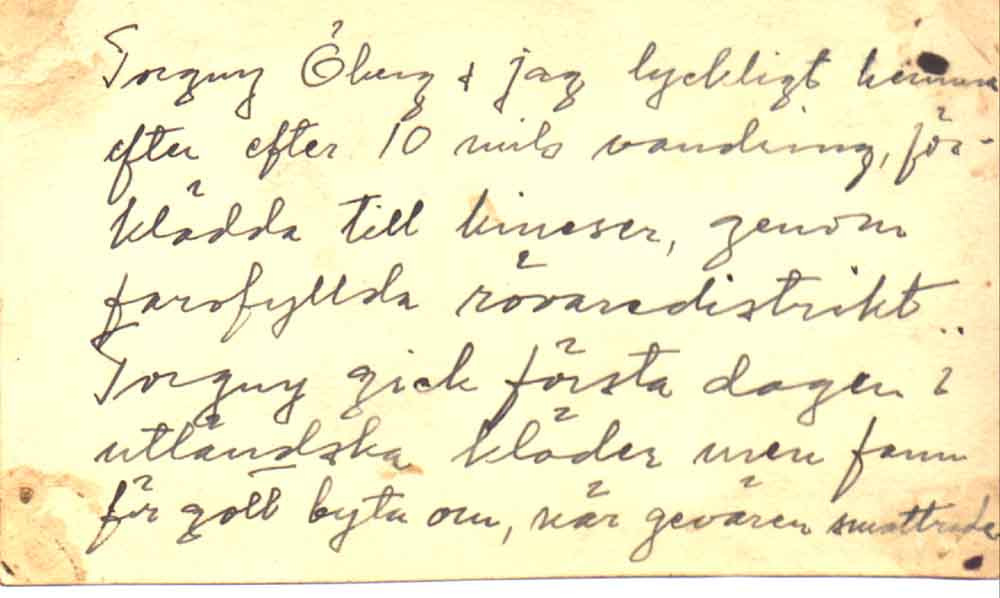 Torgny Öberg & jag lyckligt hemma
efter efter 10 mils vandring, för-
klädda till kineser, genom
farofyllda rövaredistrikt.
Torgny gick första dagen i
utländska kläder men fann
för gott byta om, när gevären smattrade